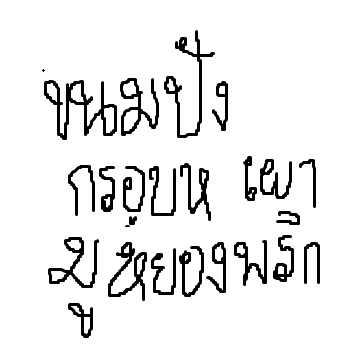 ขนมปัง
กรอบห เผา
มูหยองพริก